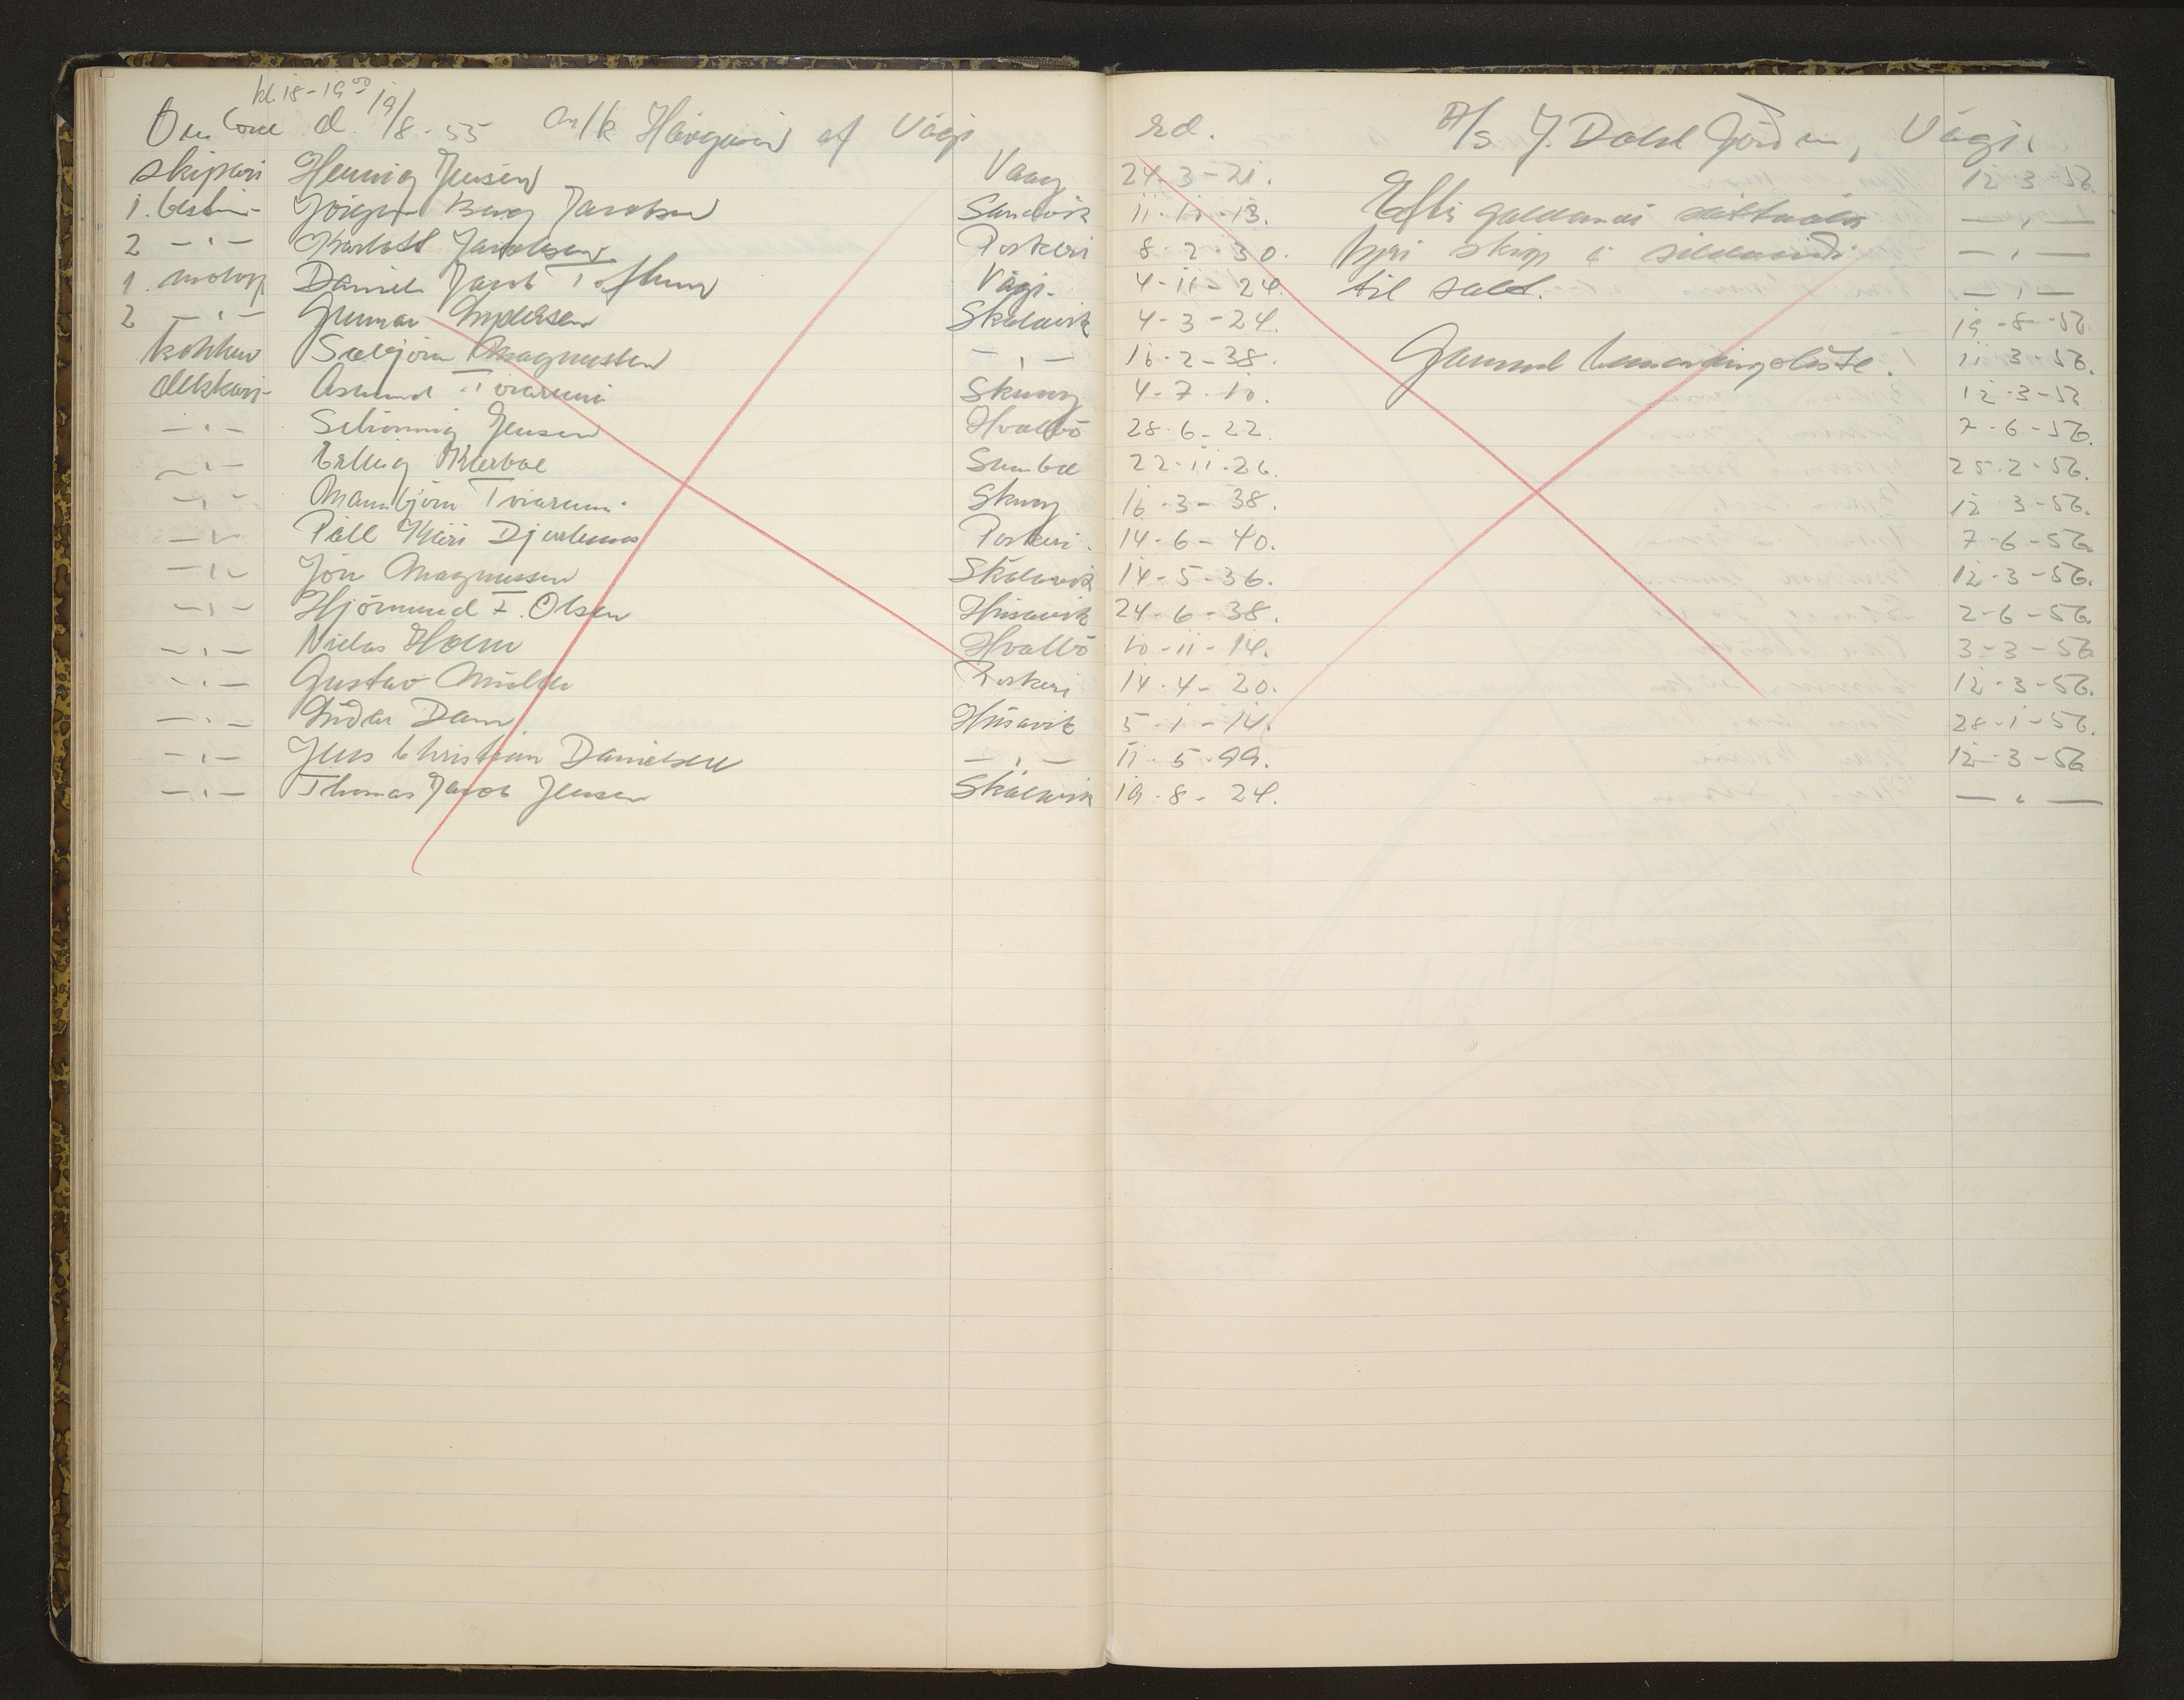 kl. 18-19 00
d. 19/8-55 m/k af Vági rd. A/S J. Dahl Vági.
skipari Hennig Jensen Vaag 24-3-21. 12-3-56.
1. bestm- Jacobsen Sandvik 11-11-13. Eftir galdandi sáttmála — " —
2 — " — Jacobsen Porkeri 8-2-30. fyri skip í sildaveiði — " —
1. motorp Daniel Jacob Toftum Vági- 4-11-24. til salt. — " —
2 — " — Gunnar Andersen Skálavik 4-3-24. 19-8-56.
kokkur Magnussen — " — 16-2-38. Gammul 11-3-56.
dekkari- Tvørami 4-7-10. 12-3-56.
— " — Schönnig Jensen Hvalbö 28-6-22. 7-6-56.
— " — Erling Kjærbæ Sumbæ 22-11-26. 25-2-56.
— " — 16-3-38. 12-3-56.
— " — Páll Djurhuus Porkeri. 14-6-40. 7-6-56.
— " — Jón Magnussen Skálavik 14-5-36. 12-3-56.
— " — Hjörmund I. Olsen Húsavik 24-6-38. 2-6-56.
— " — Niclas Holm Hvalbö 10-11-14. 3-3-56
— " — Gustav Porkeri 14-4-20. 12-3-56.
— " — Dam Húsavik 5-1-14. 28-1-56.
— " — Jens Christian Danielsen — " — 11-5-99. 12-3-56
— " — Thomas Jacob Jensen Skálavik 19-8-24. — " —